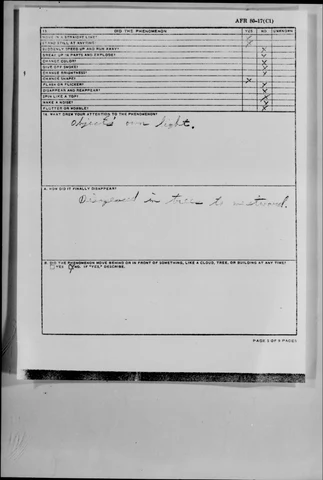 AFR 80-17(C1)
15 DID THE PHENOMENON YES NO UNKNOWN
MOVE IN A STRAIGHT LINE?
STAND STILL AT ANYTIME?
SUDDENLY SPEED UP AND RUN AWAY?
BREAK UP IN PARTS AND EXPLODE?
CHANGE COLOR?
GIVE OFF SMOKE?
CHANGE BRIGHTNESS?
CHANGE SHAPE?
FLASH OR FLICKER?
DISAPPEAR AND REAPPEAR?
SPIN LIKE A TOP?
MAKE A NOISE?
FLUTTER OR WOBBLE?
16. WHAT DREW YOUR ATTENTION TO THE PHENOMENON?
Object's own light.
A. HOW DID IT FINALLY DISAPPEAR?
in trees to
B. DID THE PHENOMENON MOVE BEHIND OR IN FRONT OF SOMETHING, LIKE A CLOUD, TREE, OR BUILDING AT ANY TIME?
YES NO. IF "YES," DESCRIBE.
PAGE 5 OF 9 PAGES